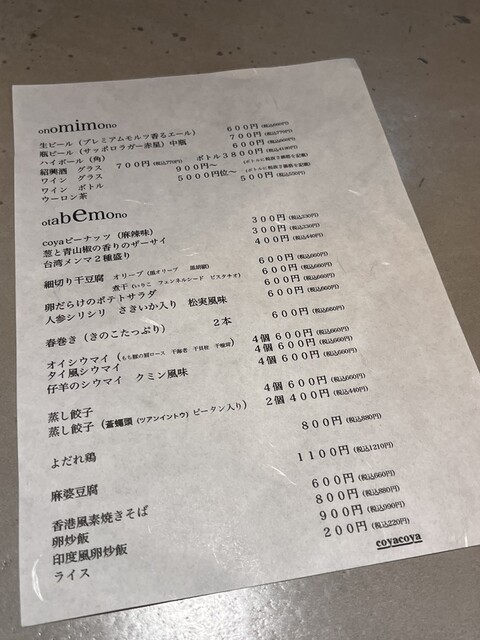 onomimono
生ビール（プレミアムモルツ香るエール） 600円(税込660円)
瓶ビール（サッポロラガー赤星）中瓶 700円(税込770円)
ハイボール（角） 600円(税込660円)
紹興酒 グラス 700円(税込770円) ボトル3800円(税込4180円)
ワイン グラス 900円～
ワイン ボトル 5000円位～
ウーロン茶 500円(税込550円)
otabemono
coyaピーナッツ（麻辣味） 300円(税込330円)
葱と青山椒の香りのザーサイ 300円(税込330円)
台湾メンマ2種盛り 400円(税込440円)
細切り干豆腐 オリーブ（黒オリーブ 黒胡椒） 600円(税込660円)
煮干（いりこ フェンネルシード ピスタチオ） 600円(税込660円)
卵だらけのポテトサラダ 600円(税込660円)
人参シリシリ さきいか入り 松実風味 600円(税込660円)
春巻き（きのこたっぷり） 2本 600円(税込660円)
オイシウマイ（もち豚の肩ロース 干海老 干貝柱 干椎茸） 4個 600円(税込660円)
タイ風シウマイ 4個 600円(税込660円)
仔羊のシウマイ クミン風味 4個 600円(税込660円)
蒸し餃子 4個 600円(税込660円)
蒸し餃子（蒼蠅頭（ツアンイントウ）ピータン入り） 2個 400円(税込440円)
よだれ鶏 800円(税込880円)
麻婆豆腐 1100円(税込1210円)
香港風素焼きそば 600円(税込660円)
卵炒飯 800円(税込880円)
印度風卵炒飯 900円(税込990円)
ライス 200円(税込220円)
coyacoya